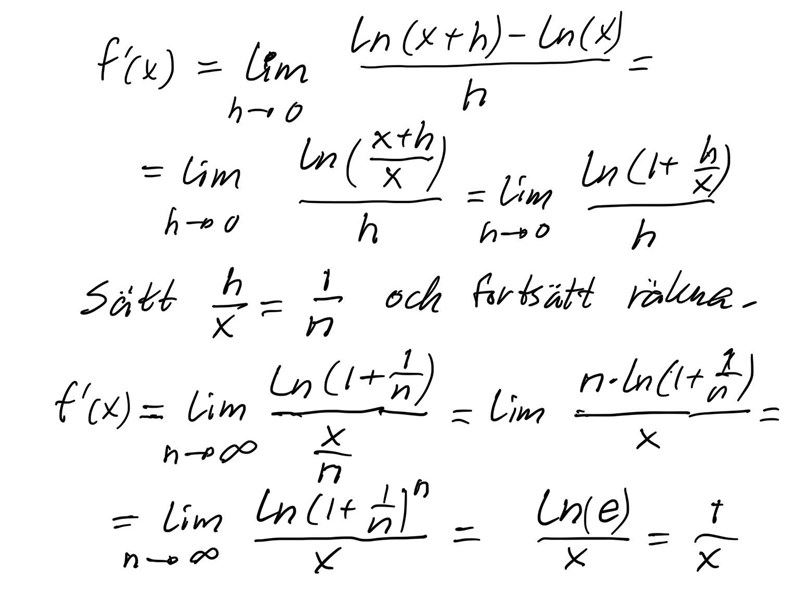 f'(x) = lim h→0 (ln(x+h) - ln(x))/h =
= lim h→0 ln((x+h)/x)/h = lim h→0 ln(1 + h/x)/h
Sätt h/x = 1/n och fortsätt räkna.
f'(x) = lim n→∞ ln(1 + 1/n)/(x/n) = lim n·ln(1 + 1/n)/x =
= lim n→∞ ln(1 + 1/n)^n/x = ln(e)/x = 1/x